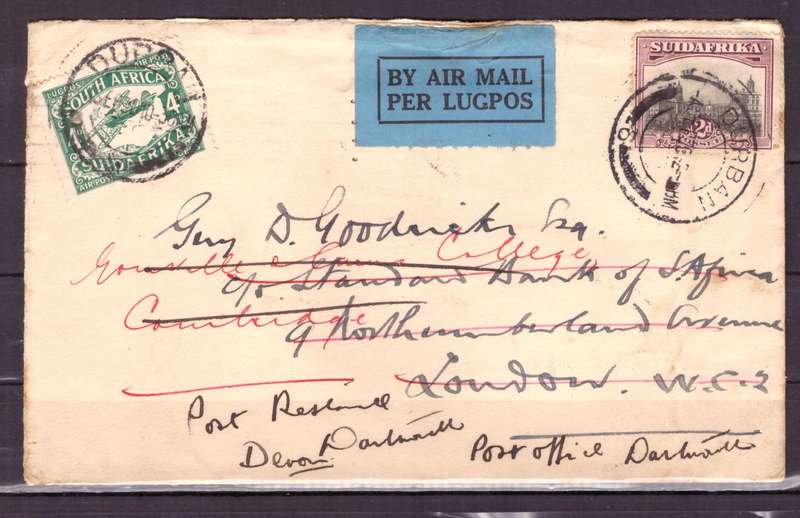 DURBAN
LUGPOS AIR POST
SOUTH AFRICA
4
SUIDAFRIKA
AIR POST
BY AIR MAIL
PER LUGPOS
SUIDAFRIKA
2d
DURBAN
Guy D. Goodricke Esq.
Gonville & Caius College,
c/o Standard Bank of S. Africa
Cambridge
9 Northumberland Avenue
London. W.C.2
Post Restante
Devon Dartmouth
Post office Dartmouth